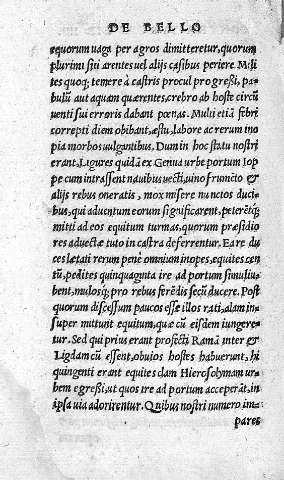 DE BELLO
equorum uaga per agros dimitteretur, quorum
plurimi siti arentes uel alijs casibus periere. Mili
tes quoq; temere à castris procul progreßi, pa-
bulũ aut aquam quærentes, crebro ab hoste circũ
uenti sui erroris dabant pœnas. Multi etiã febri
correpti diem obibant, æstu, labore ac rerum ino
pia morbos uulgantibus. Dum in hoc statu nostri
erant, Ligures quidã ex Genua urbe portum Iop
pe cum intrassent nauibus uecti, uino frumẽto &
alijs rebus oneratis, mox misere nunctos ducibus,
bus, qui aduentum eorum significarent, peterẽtq;
mitti ad eos equitum turmas, quorum præsidio
res aduectæ tuto in castra deferrentur. Ea re du
ces lætati rerum penè omnium inopes, equites cen
tũ, pedites quinquaginta ire ad portum simul iu
bent, mulosq; pro rebus ferẽdis secũ ducere. Post
quorum discessum paucos esse illos rati, alam in-
super mittunt equitum, quæ cũ eisdem iungere
tur. Sed qui prius erant profecti Ramã inter &
Ligdam cũ essent, obuios hostes habuerunt, hi
quingenti erant equites clam Hierosolymam ur
bem egreßi, ut quos ire ad portum acceperãt, in
ipsa uia adorirentur. Quibus nostri numero im-
pares